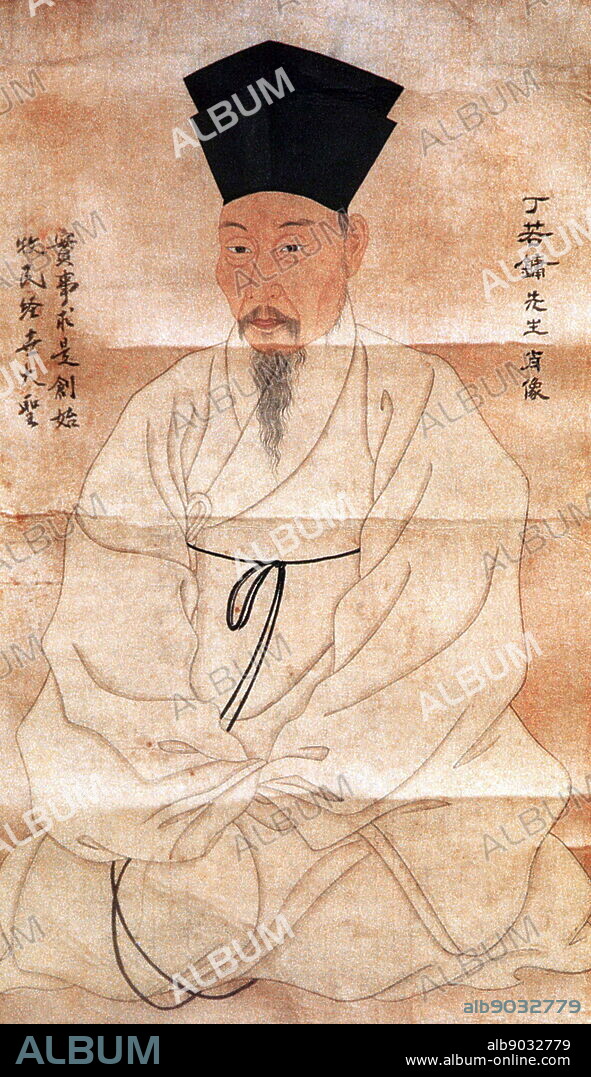 丁若鏞先生肖像
實事求是創始
牧民经世大聖
ALBUM
alb9032779
ALBUM
alb9032779
www.album-online.com